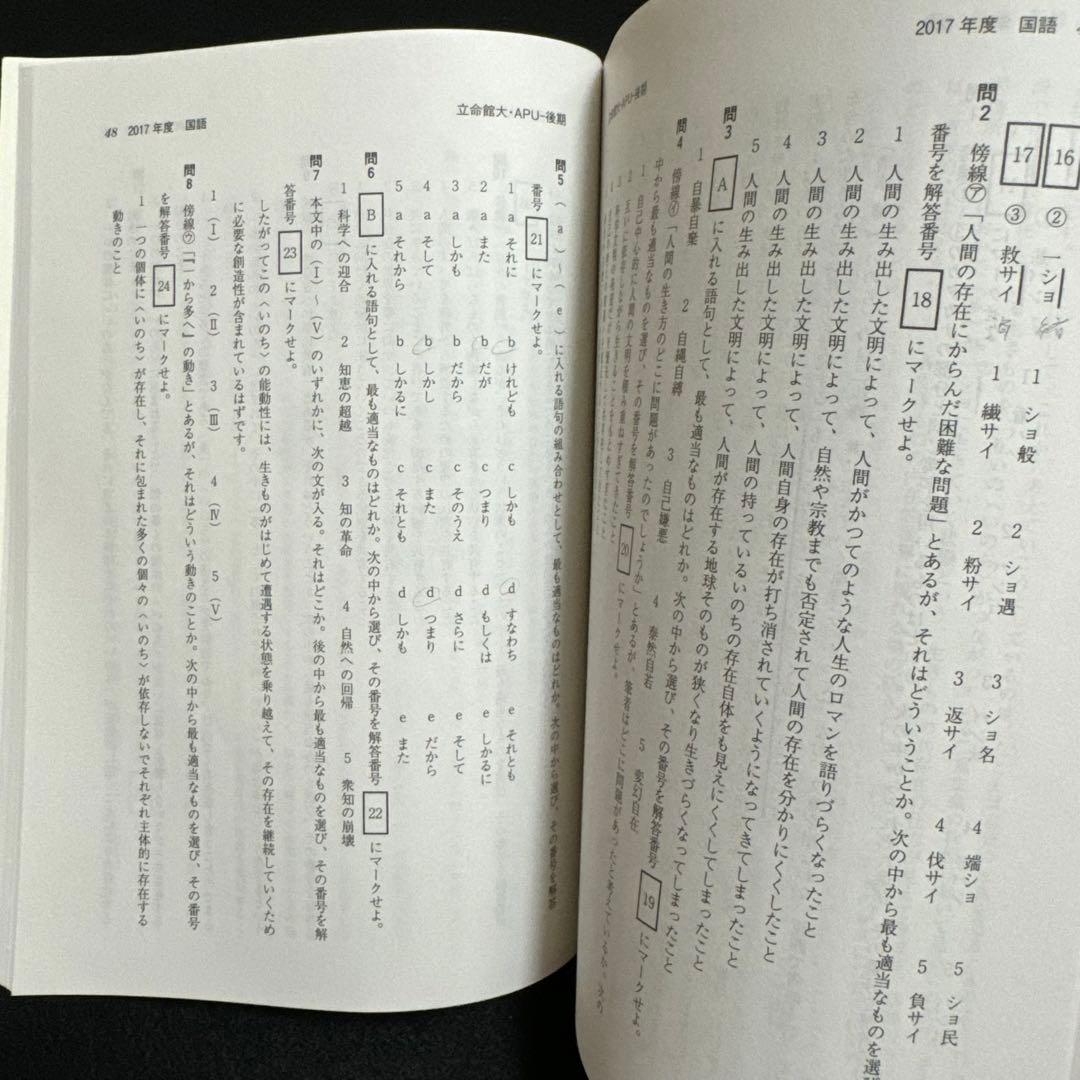 2017年度 国語
16 ② 一ショ 緒 1 ショ般 2 ショ遇 3 ショ名 4 端ショ 5 ショ民
17 ③ 救サイ 1 繊サイ 2 粉サイ 3 返サイ 4 伐サイ 5 負サイ
問2 傍線㋐「人間の存在にからんだ困難な問題」とあるが、それはどういうことか。次の中から最も適当なものを選
番号を解答番号 18 にマークせよ。
1 人間の生み出した文明によって、人間がかつてのような人生のロマンを語りづらくなったこと
2 人間の生み出した文明によって、自然や宗教までも否定されて人間の存在を分かりにくくしたこと
3 人間の生み出した文明によって、人間自身の存在が打ち消されていくようになってきてしまったこと
4 人間の生み出した文明によって、人間の持っているいのちの存在自体をも見えにくくしてしまったこと
5 人間の生み出した文明によって、人間が存在する地球そのものが狭くなり生きづらくなってしまったこと
問3 A に入れる語句として、最も適当なものはどれか。次の中から選び、その番号を解答番号 19 にマークせよ。
1 自暴自棄 2 自縄自縛 3 自己嫌悪 4 泰然自若 5 変幻自在
問4 傍線㋑「人間の生き方のどこに問題があったのでしょうか」とあるが、筆者はどこに問題があったと考えているか。次の
中から最も適当なものを選び、その番号を解答番号 20 にマークせよ。
立命館大・APU-後期
48 2017年度 国語
問5 (a)~(e)に入れる語句の組み合わせとして、最も適当なものはどれか。次の中から選び、その番号を解答
番号 21 にマークせよ。
1 a それに b けれども c しかも d すなわち e それとも
2 a また b だが c つまり d もしくは e しかるに
3 a しかも b だから c そのうえ d さらに e そして
4 a そして b しかし c また d つまり e だから
5 a それから b しかるに c それとも d しかも e また
問6 B に入れる語句として、最も適当なものはどれか。次の中から選び、その番号を解答番号 22 にマークせよ。
1 科学への迎合 2 知恵の超越 3 知の革命 4 自然への回帰 5 衆知の崩壊
問7 本文中の(Ⅰ)~(Ⅴ)のいずれかに、次の文が入る。それはどこか。後の中から最も適当なものを選び、その番号を解
答番号 23 にマークせよ。
したがってこの〈いのち〉の能動性には、生きものがはじめて遭遇する状態を乗り越えて、その存在を継続していくため
に必要な創造性が含まれているはずです。
1 (Ⅰ) 2 (Ⅱ) 3 (Ⅲ) 4 (Ⅳ) 5 (Ⅴ)
問8 傍線㋒「『一から多へ』の動き」とあるが、それはどういう動きのことか。次の中から最も適当なものを選び、その番号
を解答番号 24 にマークせよ。
1 一つの個体に〈いのち〉が存在し、それに包まれた多くの個々の〈いのち〉が依存しないでそれぞれ主体的に存在する
動きのこと